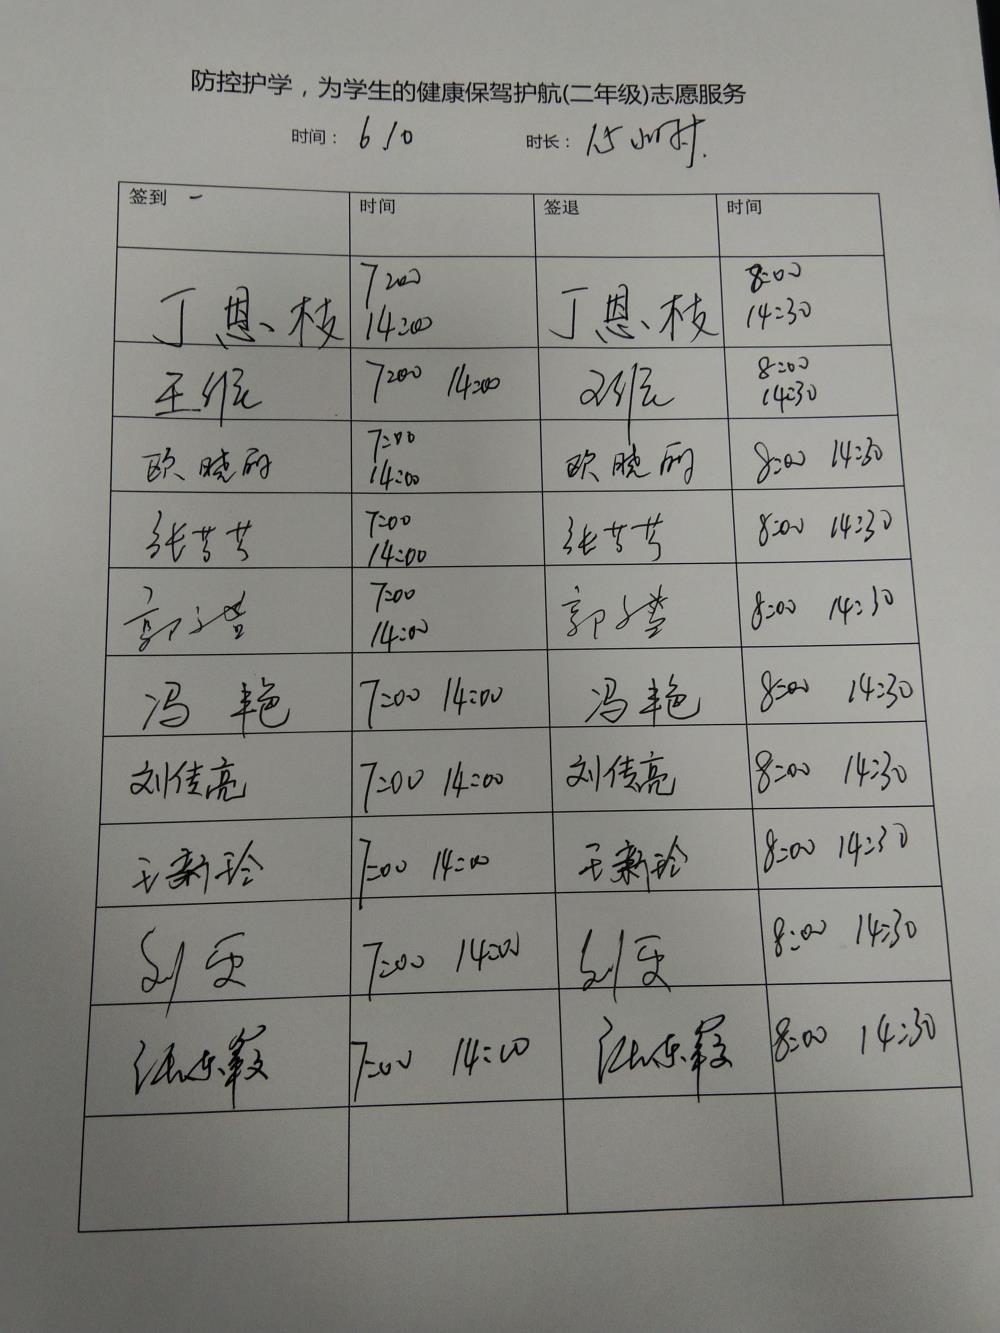 防控护学，为学生的健康保驾护航(二年级)志愿服务
时间： 6/10 时长： 1.5小时.
签到 一 时间 签退 时间
丁恩枝 7:00 14:00 丁恩枝 8:00 14:30
王 7:00 14:00 8:00 14:30
欧晓丽 7:00 14:00 欧晓丽 8:00 14:30
张芳芳 7:00 14:00 张芳芳 8:00 14:30
郭 7:00 14:00 郭 8:00 14:30
冯艳 7:00 14:00 冯艳 8:00 14:30
刘传亮 7:00 14:00 刘传亮 8:00 14:30
王新玲 7:00 14:00 王新玲 8:00 14:30
刘 7:00 14:00 刘 8:00 14:30
7:00 14:00 8:00 14:30